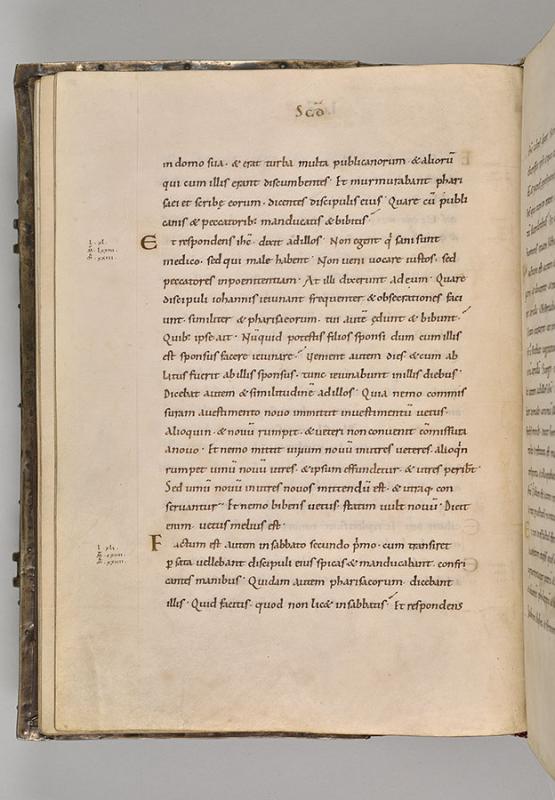 Scd̄
in domo sua · & erat turba multa publicanorum · & aliorū
qui cum illis erant discumbentes · Et murmurabant phari
sæi et scribę eorum · dicentes discipulis eius · Quare cū publi
canis & peccatorib; manducatis & bibitis
Et respondens ihc̄ · dixit ad illos · Non egent q̄ sani sunt
medico · sed qui male habent · Non veni vocare iustos · sed
peccatores in poenitentiam · At illi dixerunt ad eum · Quare
discipuli iohannis ieiunant frequenter & obsecrationes faci
unt · similiter & pharisæorum · tui autē ędunt & bibunt ·
Quib; ipse ait · Nūquid potestis filios sponsi dum cum illis
est sponsus facere ieiunare · Uenient autem dies & cum ab
latus fuerit ab illis sponsus · tunc ieiunabunt in illis diebus ·
Dicebat autem & similitudinē ad illos · Quia nemo commis
suram a vestimento novo immittit in vestimentū vetus ·
Alioquin · & novū rumpit · & veteri non convenit cōmissura
a novo · Et nemo mittit vinum novū in utres veteres · alioqn̄
rumpet vinū novū utres · & ipsum effundetur · & utres peribt̄ ·
Sed vinū novū in utres novos mittendū est · & utraq; con
servantur · Et nemo bibens vetus · statim vult novū · Dicit
enim · vetus melius est ·
Factum est autem in sabbato secundo p̄mo · cum transiret
p sata vellebant discipuli eius spicas & manducabant · confri
cantes manibus · Quidam autem pharisæorum · dicebant
illis · Quid facitis · quod non lic& in sabbatis · Et respondens